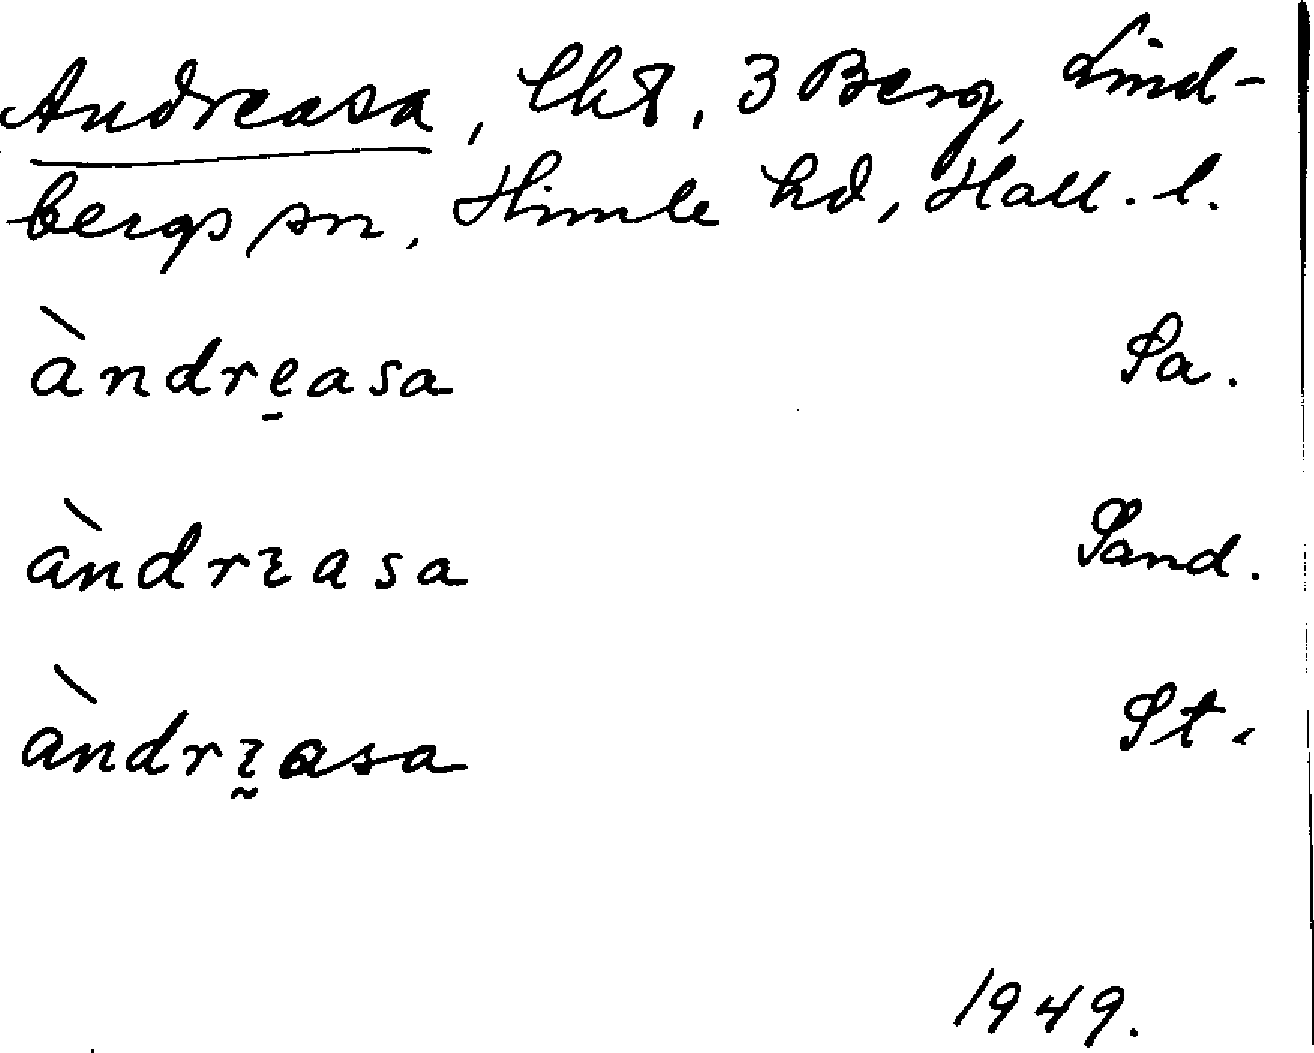 Andreasa, lht, 3 Berg, Lind-
bergs sn, Himle hd, Hall. l.
àndre̱asa Sa.
àndrɪasa Sand.
àndrɪ̰asa St.
1949.